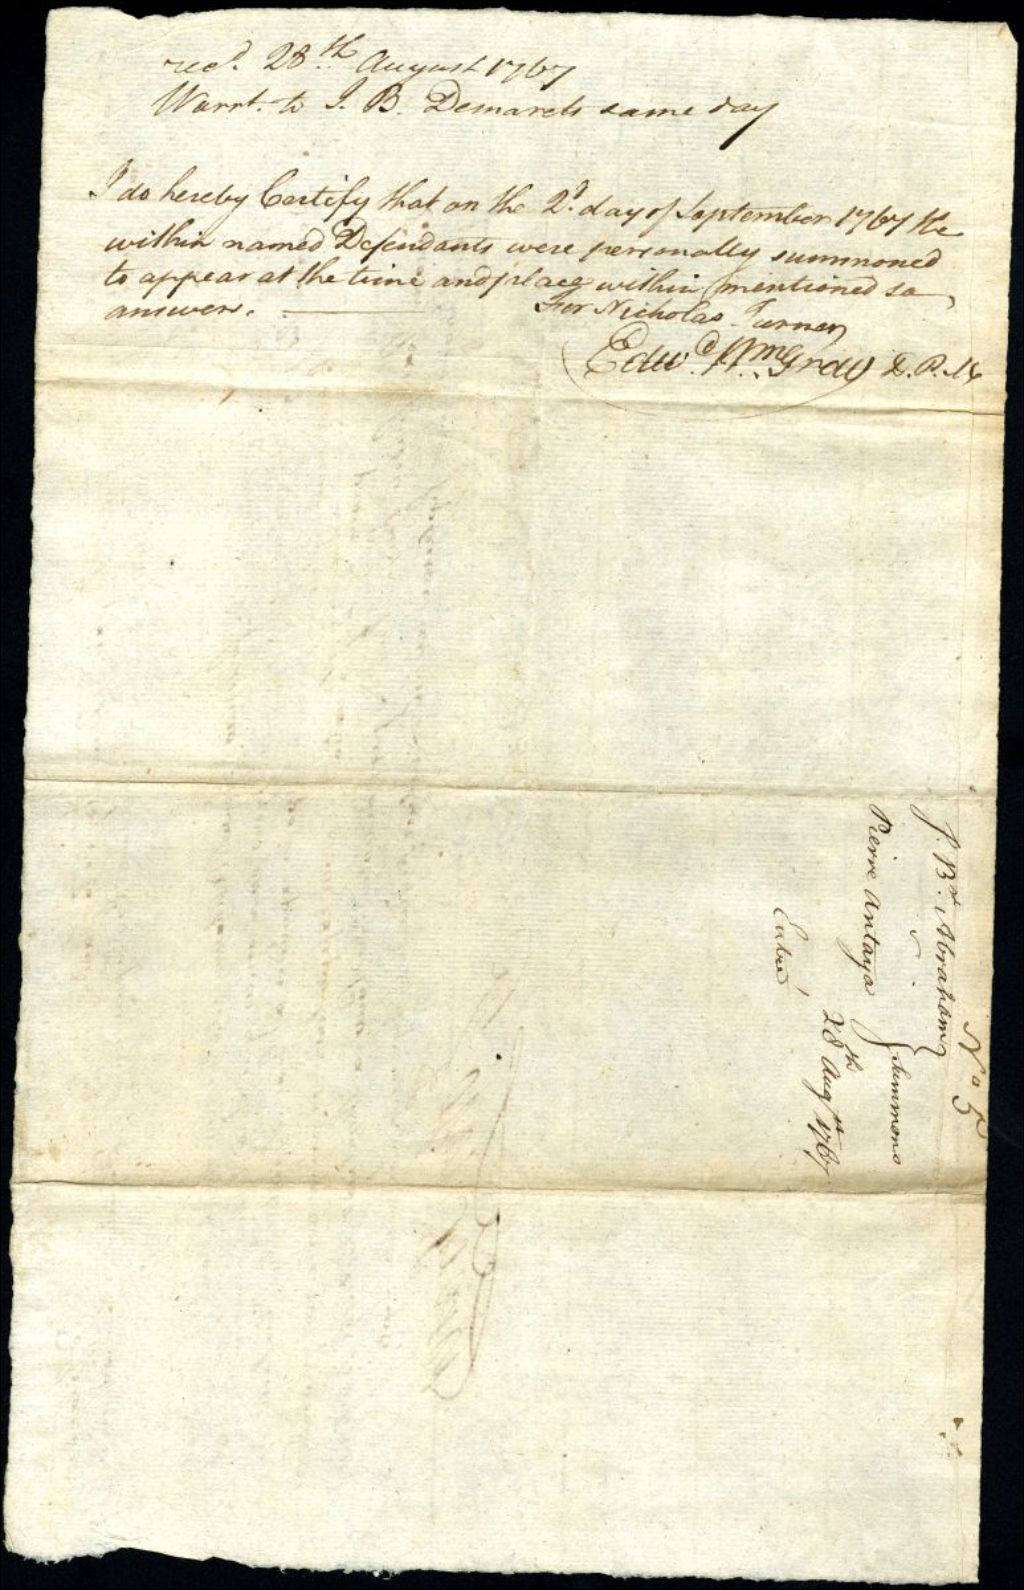 recd. 28th August 1767
Warrt. to J. B. Demarets same day
I do hereby Certify that on the 2d. day of September 1767 the
within named Defendants were personally summoned
to appear at the time and place within mentioned to
answer.
For Nicholas Turner
Edwd. Wm Gray D. P. M
No 5
J. Bte. Abraham
vs.
Pierre Antaya
} Summons
28th Augt 1767
Entrd